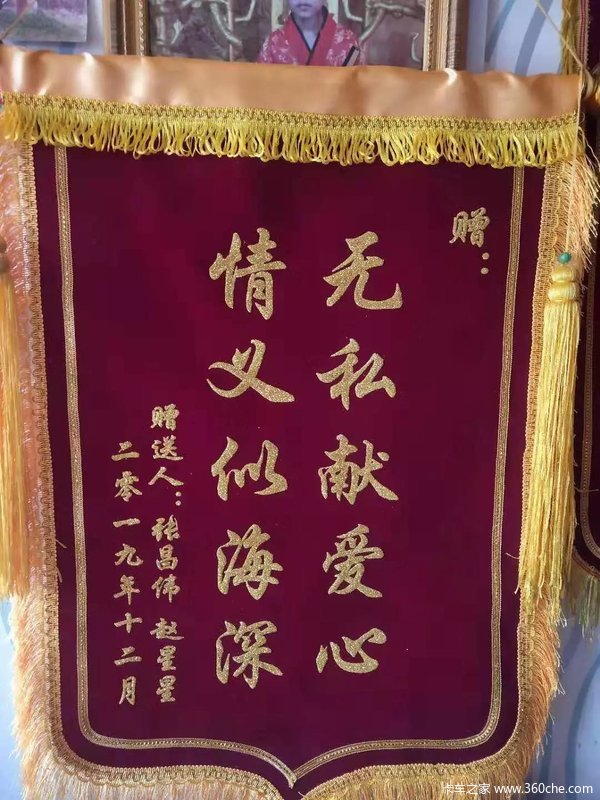 赠：
无私献爱心
情义似海深
赠送人：张昌伟 赵星星
二零一九年十二月
卡车之家 www.360che.com